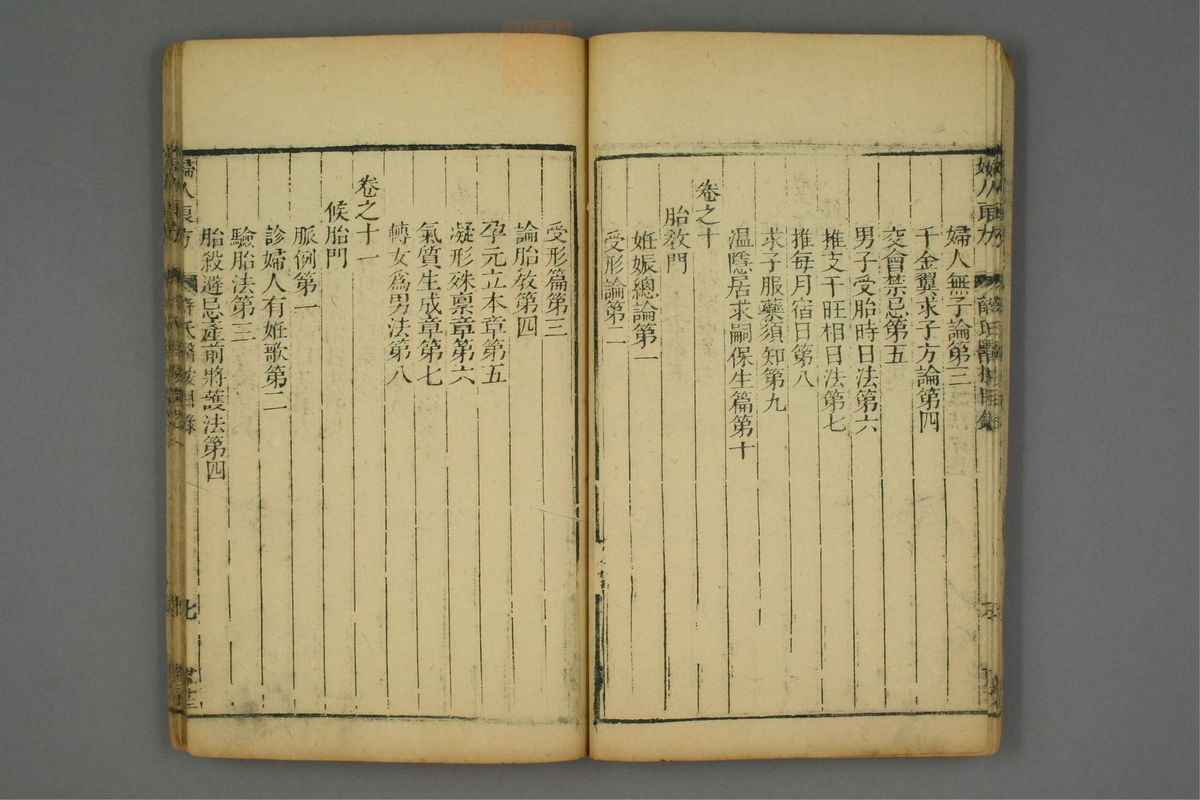 婦人無子論第三
千金翼求子方論第四
交會禁忌第五
男子受胎時日法第六
推支干旺相日法第七
推每月宿日第八
求子服藥須知第九
温隱居求嗣保生篇第十
卷之十
胎教門
姙娠總論第一
受形論第二
受形篇第三
論胎教第四
孕元立本章第五
凝形殊禀章第六
氣質生成章第七
轉女爲男法第八
卷之十一
候胎門
脈例第一
診婦人有姙歌第二
驗胎法第三
胎殺避忌產前將護法第四